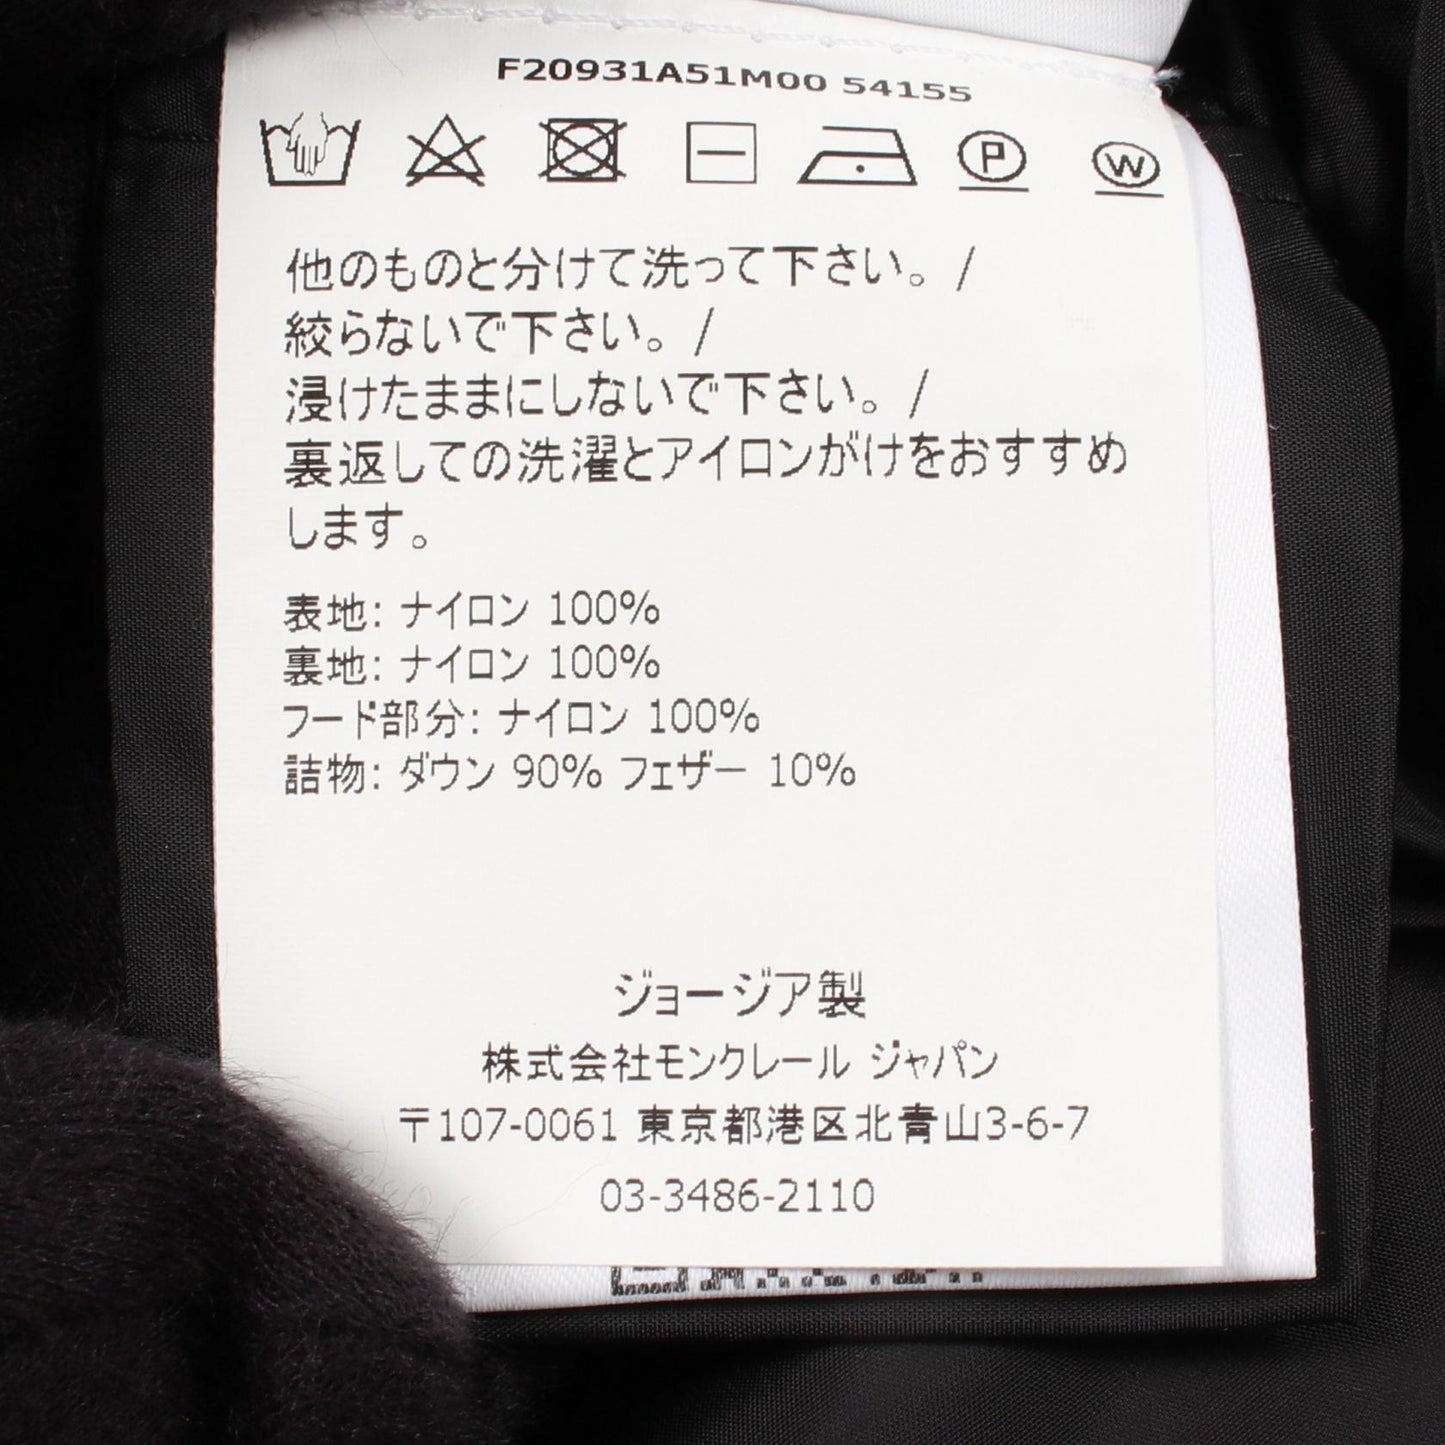 F20931A51M00 54155
P W
他のものと分けて洗って下さい。/
絞らないで下さい。/
浸けたままにしないで下さい。/
裏返しての洗濯とアイロンがけをおすすめ
します。
表地: ナイロン 100%
裏地: ナイロン 100%
フード部分: ナイロン 100%
詰物: ダウン 90% フェザー 10%
ジョージア製
株式会社モンクレール ジャパン
〒107-0061 東京都港区北青山3-6-7
03-3486-2110